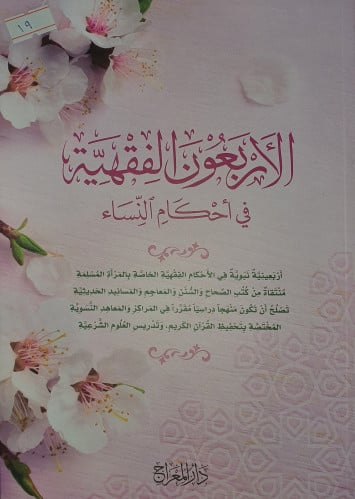 ١٩
الأَرْبَعُونَ الفِقْهِيَّة
في أحْكَامِ النِّسَاء
أربعينيَّة نبويَّة في الأحكام الفقهيَّة الخاصَّة بالمرأة المُسلمة
مُنتقاة مِن كُتُب الصِّحاح والسُّنن والمعاجم والمسانيد الحديثيَّة
تصلُحُ أن تكون منهجاً دراسياً مقرَّراً في المراكز والمعاهد النِّسويَّة
المُختصَّة بتحفيظ القُرآن الكريم، وتدريس العُلوم الشَّرعيَّة
دار المعراج